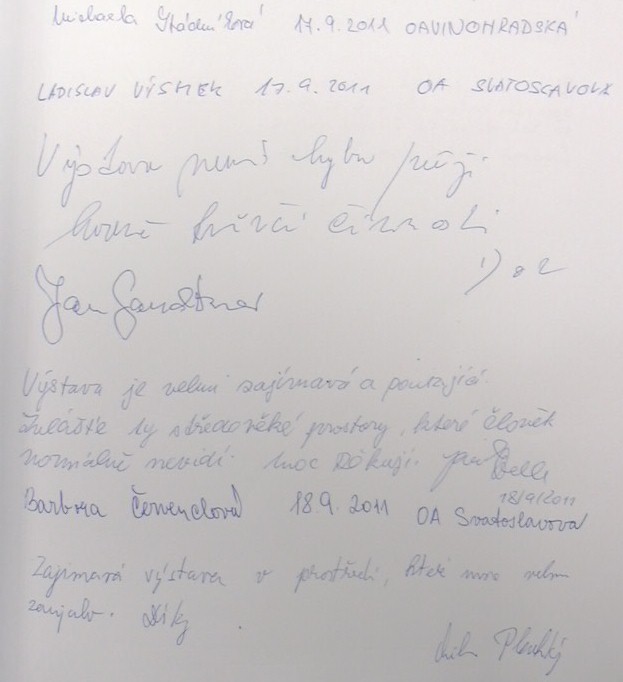 Michaela 17.9.2011 OA VINOHRADSKÁ
LADISLAV VÝSMEK 17.9.2011 OA SVATOSLAVOVA
Výstava nemá chybu přeji
hodně tvůrčí činnosti
Jan Sandtner
Výstava je velmi zajímavá a poutající.
Zvláště ty středověké prostory, které člověk
normálně nevidí. Moc Děkuji. Jan
18/9/2011
Barbora Červenclová 18.9.2011 OA Svatoslavova
Zajímavá výstava v prostředí, které mne velmi
zaujalo. Díky.